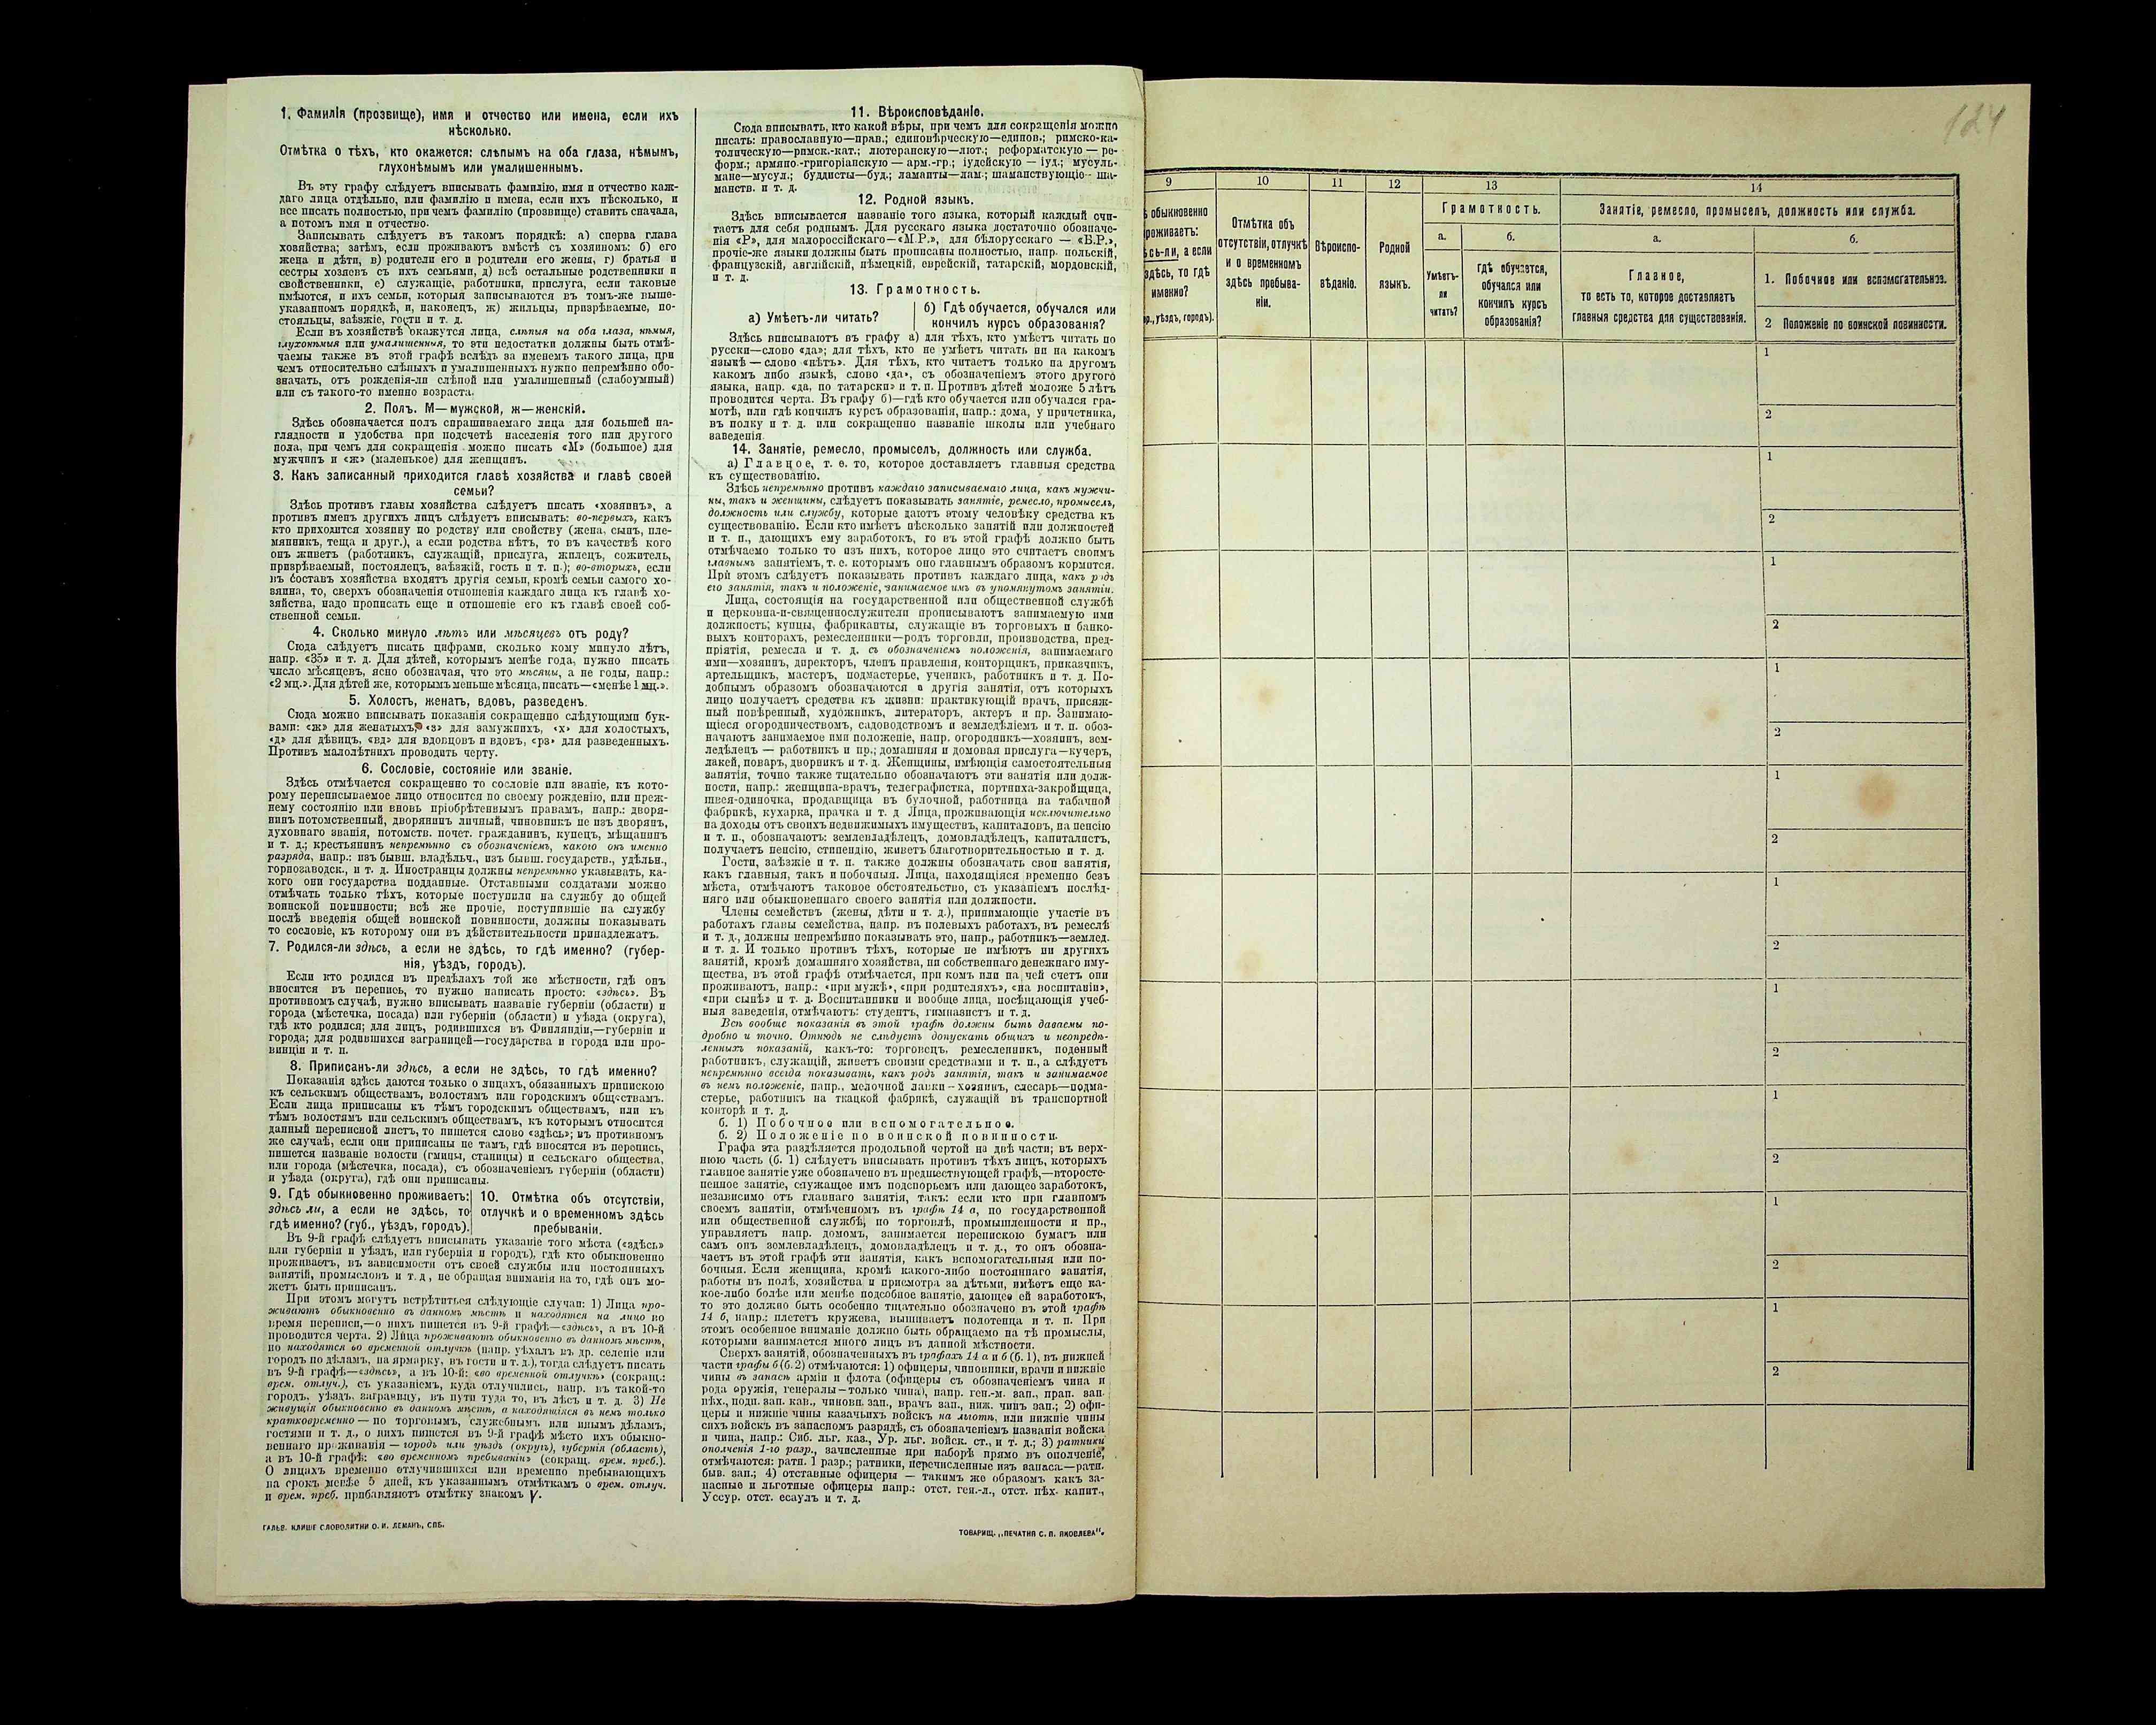 1. Фамилія (прозвище), имя и отчество или имена, если ихъ
нѣсколько.
Отмѣтка о тѣхъ, кто окажется: слѣпымъ на оба глаза, нѣмымъ,
глухонѣмымъ или умалишеннымъ.
Въ эту графу слѣдуетъ вписывать фамилію, имя и отчество каж-
даго лица отдѣльно, или фамилію и имена, если ихъ нѣсколько, и
все писать полностью, при чемъ фамилію (прозвище) ставить сначала,
а потомъ имя и отчество.
Записывать слѣдуетъ въ такомъ порядкѣ: а) сперва глава
хозяйства; затѣмъ, если проживаютъ вмѣстѣ съ хозяиномъ: б) его
жена и дѣти, в) родители его и родители его жены, г) братья и
сестры хозяевъ съ ихъ семьями, д) всѣ остальные родственники и
свойственники, е) служащіе, работники, прислуга, если таковые
имѣются, и ихъ семьи, которыя записываются въ томъ-же выше-
указанномъ порядкѣ, и, наконецъ, ж) жильцы, призрѣваемые, по-
стояльцы, заѣзжіе, гости и т. д.
Если въ хозяйствѣ окажутся лица, слѣпыя на оба глаза, нѣмыя,
глухонѣмыя или умалишенныя, то эти недостатки должны быть отмѣ-
чаемы также въ этой графѣ вслѣдъ за именемъ такого лица, при
чемъ относительно слѣпыхъ и умалишенныхъ нужно непремѣнно обо-
значать, отъ рожденія-ли слѣпой или умалишенный (слабоумный)
или съ такого-то именно возраста.
2. Полъ. М—мужской, ж—женскій.
Здѣсь обозначается полъ спрашиваемаго лица для большей на-
глядности и удобства при подсчетѣ населенія того или другого
пола, при чемъ для сокращенія можно писать «М» (большое) для
мужчинъ и «ж» (маленькое) для женщинъ.
3. Какъ записанный приходится главѣ хозяйства и главѣ своей
семьи?
Здѣсь противъ главы хозяйства слѣдуетъ писать «хозяинъ», а
противъ именъ другихъ лицъ слѣдуетъ вписывать: во-первыхъ, какъ
кто приходится хозяину по родству или свойству (жена, сынъ, пле-
мянникъ, теща и друг.), а если родства нѣтъ, то въ качествѣ кого
онъ живетъ (работникъ, служащій, прислуга, жилецъ, сожитель,
призрѣваемый, постоялецъ, заѣзжій, гость и т. п.); во-вторыхъ, если
въ составъ хозяйства входятъ другія семьи, кромѣ семьи самого хо-
зяина, то, сверхъ обозначенія отношенія каждаго лица къ главѣ хо-
зяйства, надо прописать еще и отношеніе его къ главѣ своей соб-
ственной семьи.
4. Сколько минуло лѣтъ или мѣсяцевъ отъ роду?
Сюда слѣдуетъ писать цифрами, сколько кому минуло лѣтъ,
напр. «35» и т. д. Для дѣтей, которымъ менѣе года, нужно писать
число мѣсяцевъ, ясно обозначая, что это мѣсяцы, а не годы, напр.:
«2 мц.». Для дѣтей же, которымъ меньше мѣсяца, писать—«менѣе 1 мц.».
5. Холостъ, женатъ, вдовъ, разведенъ.
Сюда можно вписывать показанія сокращенно слѣдующими бук-
вами: «ж» для женатыхъ, «з» для замужнихъ, «х» для холостыхъ,
«д» для дѣвицъ, «вд» для вдовцовъ и вдовъ, «рз» для разведенныхъ.
Противъ малолѣтнихъ проводить черту.
6. Сословіе, состояніе или званіе.
Здѣсь отмѣчается сокращенно то сословіе или званіе, къ кото-
рому переписываемое лицо относится по своему рожденію, или преж-
нему состоянію или вновь пріобрѣтеннымъ правамъ, напр.: дворя-
нинъ потомственный, дворянинъ личный, чиновникъ не изъ дворянъ,
духовнаго званія, потомств. почет. гражданинъ, купецъ, мѣщанинъ
и т. д.; крестьянинъ непремѣнно съ обозначеніемъ, какого онъ именно
разряда, напр.: изъ бывш. владѣльч., изъ бывш. государств., удѣльн.,
горнозаводск., и т. д. Иностранцы должны непремѣнно указывать, ка-
кого они государства подданные. Отставными солдатами можно
отмѣчать только тѣхъ, которые поступили на службу до общей
воинской повинности; всѣ же прочіе, поступившіе на службу
послѣ введенія общей воинской повинности, должны показывать
то сословіе, къ которому они въ дѣйствительности принадлежатъ.
7. Родился-ли здѣсь, а если не здѣсь, то гдѣ именно? (губер-
нія, уѣздъ, городъ).
Если кто родился въ предѣлахъ той же мѣстности, гдѣ онъ
вносится въ перепись, то нужно написать просто: «здѣсь». Въ
противномъ случаѣ, нужно вписывать названіе губерніи (области) и
города (мѣстечка, посада) или губерніи (области) и уѣзда (округа),
гдѣ кто родился; для лицъ, родившихся въ Финляндіи,—губерніи и
города; для родившихся заграницей—государства и города или про-
винціи и т. п.
8. Приписанъ-ли здѣсь, а если не здѣсь, то гдѣ именно?
Показанія здѣсь даются только о лицахъ, обязанныхъ припискою
къ сельскимъ обществамъ, волостямъ или городскимъ обществамъ.
Если лица приписаны къ тѣмъ городскимъ обществамъ, или къ
тѣмъ волостямъ или сельскимъ обществамъ, къ которымъ относится
данный переписной листъ, то пишется слово «здѣсь»; въ противномъ
же случаѣ, если они приписаны не тамъ, гдѣ вносятся въ перепись,
пишется названіе волости (гмины, станицы) и сельскаго общества,
или города (мѣстечка, посада), съ обозначеніемъ губерніи (области)
и уѣзда (округа), гдѣ они приписаны.
9. Гдѣ обыкновенно проживаетъ:
здѣсь ли, а если не здѣсь, то
гдѣ именно? (губ., уѣздъ, городъ).
10. Отмѣтка объ отсутствіи,
отлучкѣ и о временномъ здѣсь
пребываніи.
Въ 9-й графѣ слѣдуетъ вписывать указаніе того мѣста («здѣсь»
или губернія и уѣздъ, или губернія и городъ), гдѣ кто обыкновенно
проживаетъ, въ зависимости отъ своей службы или постоянныхъ
занятій, промысловъ и т. д., не обращая вниманія на то, гдѣ онъ мо-
жетъ быть приписанъ.
При этомъ могутъ встрѣтиться слѣдующіе случаи: 1) Лица про-
живаютъ обыкновенно въ данномъ мѣстѣ и находятся на лицо во
время переписи,—о нихъ пишется въ 9-й графѣ—«здѣсь», а въ 10-й
проводится черта. 2) Лица проживаютъ обыкновенно въ данномъ мѣстѣ,
но находятся во временной отлучкѣ (напр. уѣхалъ въ др. селеніе или
городъ по дѣламъ, на ярмарку, въ гости и т. д.), тогда слѣдуетъ писать
въ 9-й графѣ—«здѣсь», а въ 10-й: «во временной отлучкѣ» (сокращ.:
врем. отлуч.), съ указаніемъ, куда отлучились, напр. въ такой-то
городъ, уѣздъ, заграницу, въ пути туда то, въ лѣсъ и т. д. 3) Не
живущія обыкновенно въ данномъ мѣстѣ, а находящіяся въ немъ только
кратковременно — по торговымъ, служебнымъ или инымъ дѣламъ,
гостями и т. д., о нихъ пишется въ 9-й графѣ мѣсто ихъ обыкно-
веннаго проживанія — городъ или уѣздъ (округъ), губернія (область),
а въ 10-й графѣ: «во временномъ пребываніи» (сокращ. врем. преб.).
О лицахъ временно отлучившихся или временно пребывающихъ
на срокъ менѣе 5 дней, къ указаннымъ отмѣткамъ о врем. отлуч.
и врем. преб. прибавляютъ отмѣтку знакомъ V.
ГАЛЬВ. КЛИШЕ СЛОВОЛИТНИ О. И. ЛЕМАНЪ, СПБ.
11. Вѣроисповѣданіе.
Сюда вписывать, кто какой вѣры, при чемъ для сокращенія можно
писать: православную—прав.; единовѣрческую—единов.; римско-ка-
толическую—римск.-кат.; лютеранскую—лют.; реформатскую — ре-
форм.; армяно-григоріанскую — арм.-гр.; іудейскую — іуд.; мусуль-
мане—мусул.; буддисты—буд.; ламаиты—лам.; шаманствующіе— ша-
манств. и т. д.
12. Родной языкъ.
Здѣсь вписывается названіе того языка, который каждый счи-
таетъ для себя роднымъ. Для русскаго языка достаточно обозначе-
нія «Р», для малороссійскаго—«М.Р.», для бѣлорусскаго — «Б.Р.»,
прочіе-же языки должны быть прописаны полностью, напр. польскій,
французскій, англійскій, нѣмецкій, еврейскій, татарскій, мордовскій,
и т. д.
13. Грамотность.
а) Умѣетъ-ли читать?
б) Гдѣ обучается, обучался или
кончилъ курсъ образованія?
Здѣсь вписываютъ въ графу а) для тѣхъ, кто умѣетъ читать по
русски—слово «да»; для тѣхъ, кто не умѣетъ читать ни на какомъ
языкѣ — слово «нѣтъ». Для тѣхъ, кто читаетъ только на другомъ
какомъ либо языкѣ, слово «да», съ обозначеніемъ этого другого
языка, напр. «да, по татарски» и т. п. Противъ дѣтей моложе 5 лѣтъ
проводится черта. Въ графу б)—гдѣ кто обучается или обучался гра-
мотѣ, или гдѣ кончилъ курсъ образованія, напр.: дома, у причетника,
въ полку и т. д. или сокращенно названіе школы или учебнаго
заведенія.
14. Занятіе, ремесло, промыселъ, должность или служба.
а) Главное, т. е. то, которое доставляетъ главныя средства
къ существованію.
Здѣсь непремѣнно противъ каждаго записываемаго лица, какъ мужчи-
ны, такъ и женщины, слѣдуетъ показывать занятіе, ремесло, промыселъ,
должность или службу, которые даютъ этому человѣку средства къ
существованію. Если кто имѣетъ нѣсколько занятій или должностей
и т. п., дающихъ ему заработокъ, то въ этой графѣ должно быть
отмѣчаемо только то изъ нихъ, которое лицо это считаетъ своимъ
главнымъ занятіемъ, т. е. которымъ оно главнымъ образомъ кормится.
При этомъ слѣдуетъ показывать противъ каждаго лица, какъ родъ
его занятія, такъ и положеніе, занимаемое имъ въ упомянутомъ занятіи.
Лица, состоящія на государственной или общественной службѣ
и церковно-и-священнослужители прописываютъ занимаемую ими
должность; купцы, фабриканты, служащіе въ торговыхъ и банко-
выхъ конторахъ, ремесленники—родъ торговли, производства, пред-
пріятія, ремесла и т. д. съ обозначеніемъ положенія, занимаемаго
ими—хозяинъ, директоръ, членъ правленія, конторщикъ, приказчикъ,
артельщикъ, мастеръ, подмастерье, ученикъ, работникъ и т. д. По-
добнымъ образомъ обозначаются и другія занятія, отъ которыхъ
лицо получаетъ средства къ жизни: практикующій врачъ, присяж-
ный повѣренный, художникъ, литераторъ, актеръ и пр. Занимаю-
щіеся огородничествомъ, садоводствомъ и земледѣліемъ и т. п. обоз-
начаютъ занимаемое ими положеніе, напр. огородникъ—хозяинъ, зем-
ледѣлецъ — работникъ и пр.; домашняя и домовая прислуга—кучеръ,
лакей, поваръ, дворникъ и т. д. Женщины, имѣющія самостоятельныя
занятія, точно также тщательно обозначаютъ эти занятія или долж-
ности, напр.: женщина-врачъ, телеграфистка, портниха-закройщица,
швея-одиночка, продавщица въ булочной, работница на табачной
фабрикѣ, кухарка, прачка и т. д. Лица, проживающія исключительно
на доходы отъ своихъ недвижимыхъ имуществъ, капиталовъ, на пенсію
и т. п., обозначаютъ: землевладѣлецъ, домовладѣлецъ, капиталистъ,
получаетъ пенсію, стипендію, живетъ благотворительностью и т. д.
Гости, заѣзжіе и т. п. также должны обозначать свои занятія,
какъ главныя, такъ и побочныя. Лица, находящіяся временно безъ
мѣста, отмѣчаютъ таковое обстоятельство, съ указаніемъ послѣд-
няго или обыкновеннаго своего занятія или должности.
Члены семействъ (жены, дѣти и т. д.), принимающіе участіе въ
работахъ главы семейства, напр. въ полевыхъ работахъ, въ ремеслѣ
и т. д., должны непремѣнно показывать это, напр., работникъ—землед.
и т. д. И только противъ тѣхъ, которые не имѣютъ ни другихъ
занятій, кромѣ домашняго хозяйства, ни собственнаго денежнаго иму-
щества, въ этой графѣ отмѣчается, при комъ или на чей счетъ они
проживаютъ, напр.: «при мужѣ», «при родителяхъ», «на воспитаніи»,
«при сынѣ» и т. д. Воспитанники и вообще лица, посѣщающія учеб-
ныя заведенія, отмѣчаютъ: студентъ, гимназистъ и т. д.
Всѣ вообще показанія въ этой графѣ должны быть даваемы по-
дробно и точно. Отнюдь не слѣдуетъ допускать общихъ и неопредѣ-
ленныхъ показаній, какъ-то: торговецъ, ремесленникъ, поденный
работникъ, служащій, живетъ своими средствами и т. п., а слѣдуетъ
непремѣнно всегда показывать, какъ родъ занятія, такъ и занимаемое
въ немъ положеніе, напр., мелочной лавки—хозяинъ, слесарь—подма-
стерье, работникъ на ткацкой фабрикѣ, служащій въ транспортной
конторѣ и т. д.
б. 1) Побочное или вспомогательное.
б. 2) Положеніе по воинской повинности.
Графа эта раздѣляется продольной чертой на двѣ части; въ верх-
нюю часть (б. 1) слѣдуетъ вписывать противъ тѣхъ лицъ, которыхъ
главное занятіе уже обозначено въ предшествующей графѣ,—второсте-
пенное занятіе, служащее имъ подспорьемъ или дающее заработокъ,
независимо отъ главнаго занятія, такъ: если кто при главномъ
своемъ занятіи, отмѣченномъ въ графѣ 14 а, по государственной
или общественной службѣ, по торговлѣ, промышленности и пр.,
управляетъ напр. домомъ, занимается перепискою бумагъ или
самъ онъ землевладѣлецъ, домовладѣлецъ и т. д., то онъ обозна-
чаетъ въ этой графѣ эти занятія, какъ вспомогательныя или по-
бочныя. Если женщина, кромѣ какого-либо постояннаго занятія,
работы въ полѣ, хозяйства и присмотра за дѣтьми, имѣетъ еще ка-
кое-либо болѣе или менѣе подсобное занятіе, дающее ей заработокъ,
то это должно быть особенно тщательно обозначено въ этой графѣ
14 б, напр.: плететъ кружева, вышиваетъ полотенца и т. п. При
этомъ особенное вниманіе должно быть обращаемо на тѣ промыслы,
которыми занимается много лицъ въ данной мѣстности.
Сверхъ занятій, обозначенныхъ въ графахъ 14 а и б (б. 1), въ нижней
части графы б (б. 2) отмѣчаются: 1) офицеры, чиновники, врачи и нижніе
чины въ запасѣ арміи и флота (офицеры съ обозначеніемъ чина и
рода оружія, генералы—только чина), напр. ген.-м. зап., прап. зап.
пѣх., подп. зап. кав., чиновн. зап., врачъ зап., ниж. чинъ зап.; 2) офи-
церы и нижніе чины казачьихъ войскъ на льготѣ, или нижніе чины
сихъ войскъ въ запасномъ разрядѣ, съ обозначеніемъ названія войска
и чина, напр.: Сиб. льг. каз., Ур. льг. войск. ст., и т. д.; 3) ратники
ополченія 1-го разр., зачисленные при наборѣ прямо въ ополченіе,
отмѣчаются: ратн. 1 разр.; ратники, перечисленные изъ запаса.—ратн.
быв. зап.; 4) отставные офицеры — такимъ же образомъ какъ за-
пасные и льготные офицеры напр.: отст. ген.-л., отст. пѣх. капит.,
Уссур. отст. есаулъ и т. д.
ТОВАРИЩ. „ПЕЧАТНЯ С. П. ЯКОВЛЕВА".
124
9
ѣ обыкновенно
роживаетъ:
ѣсь-ли, а если
здѣсь, то гдѣ
именно?
р., уѣздъ, городъ).
10
Отмѣтка объ
отсутствіи, отлучкѣ
и о временномъ
здѣсь пребыва-
ніи.
11
Вѣроиспо-
вѣданіе.
12
Родной
языкъ.
13
Грамотность.
а.
Умѣетъ-
ли
читать?
б.
гдѣ обучается,
обучался или
кончилъ курсъ
образованія?
14
Занятіе, ремесло, промыселъ, должность или служба.
а.
Главное,
то есть то, которое доставляетъ
главныя средства для существованія.
б.
1. Побочное или вспомогательное.
2 Положеніе по воинской повинности.
1
2
1
2
1
2
1
2
1
2
1
2
1
2
1
2
1
2
1
2